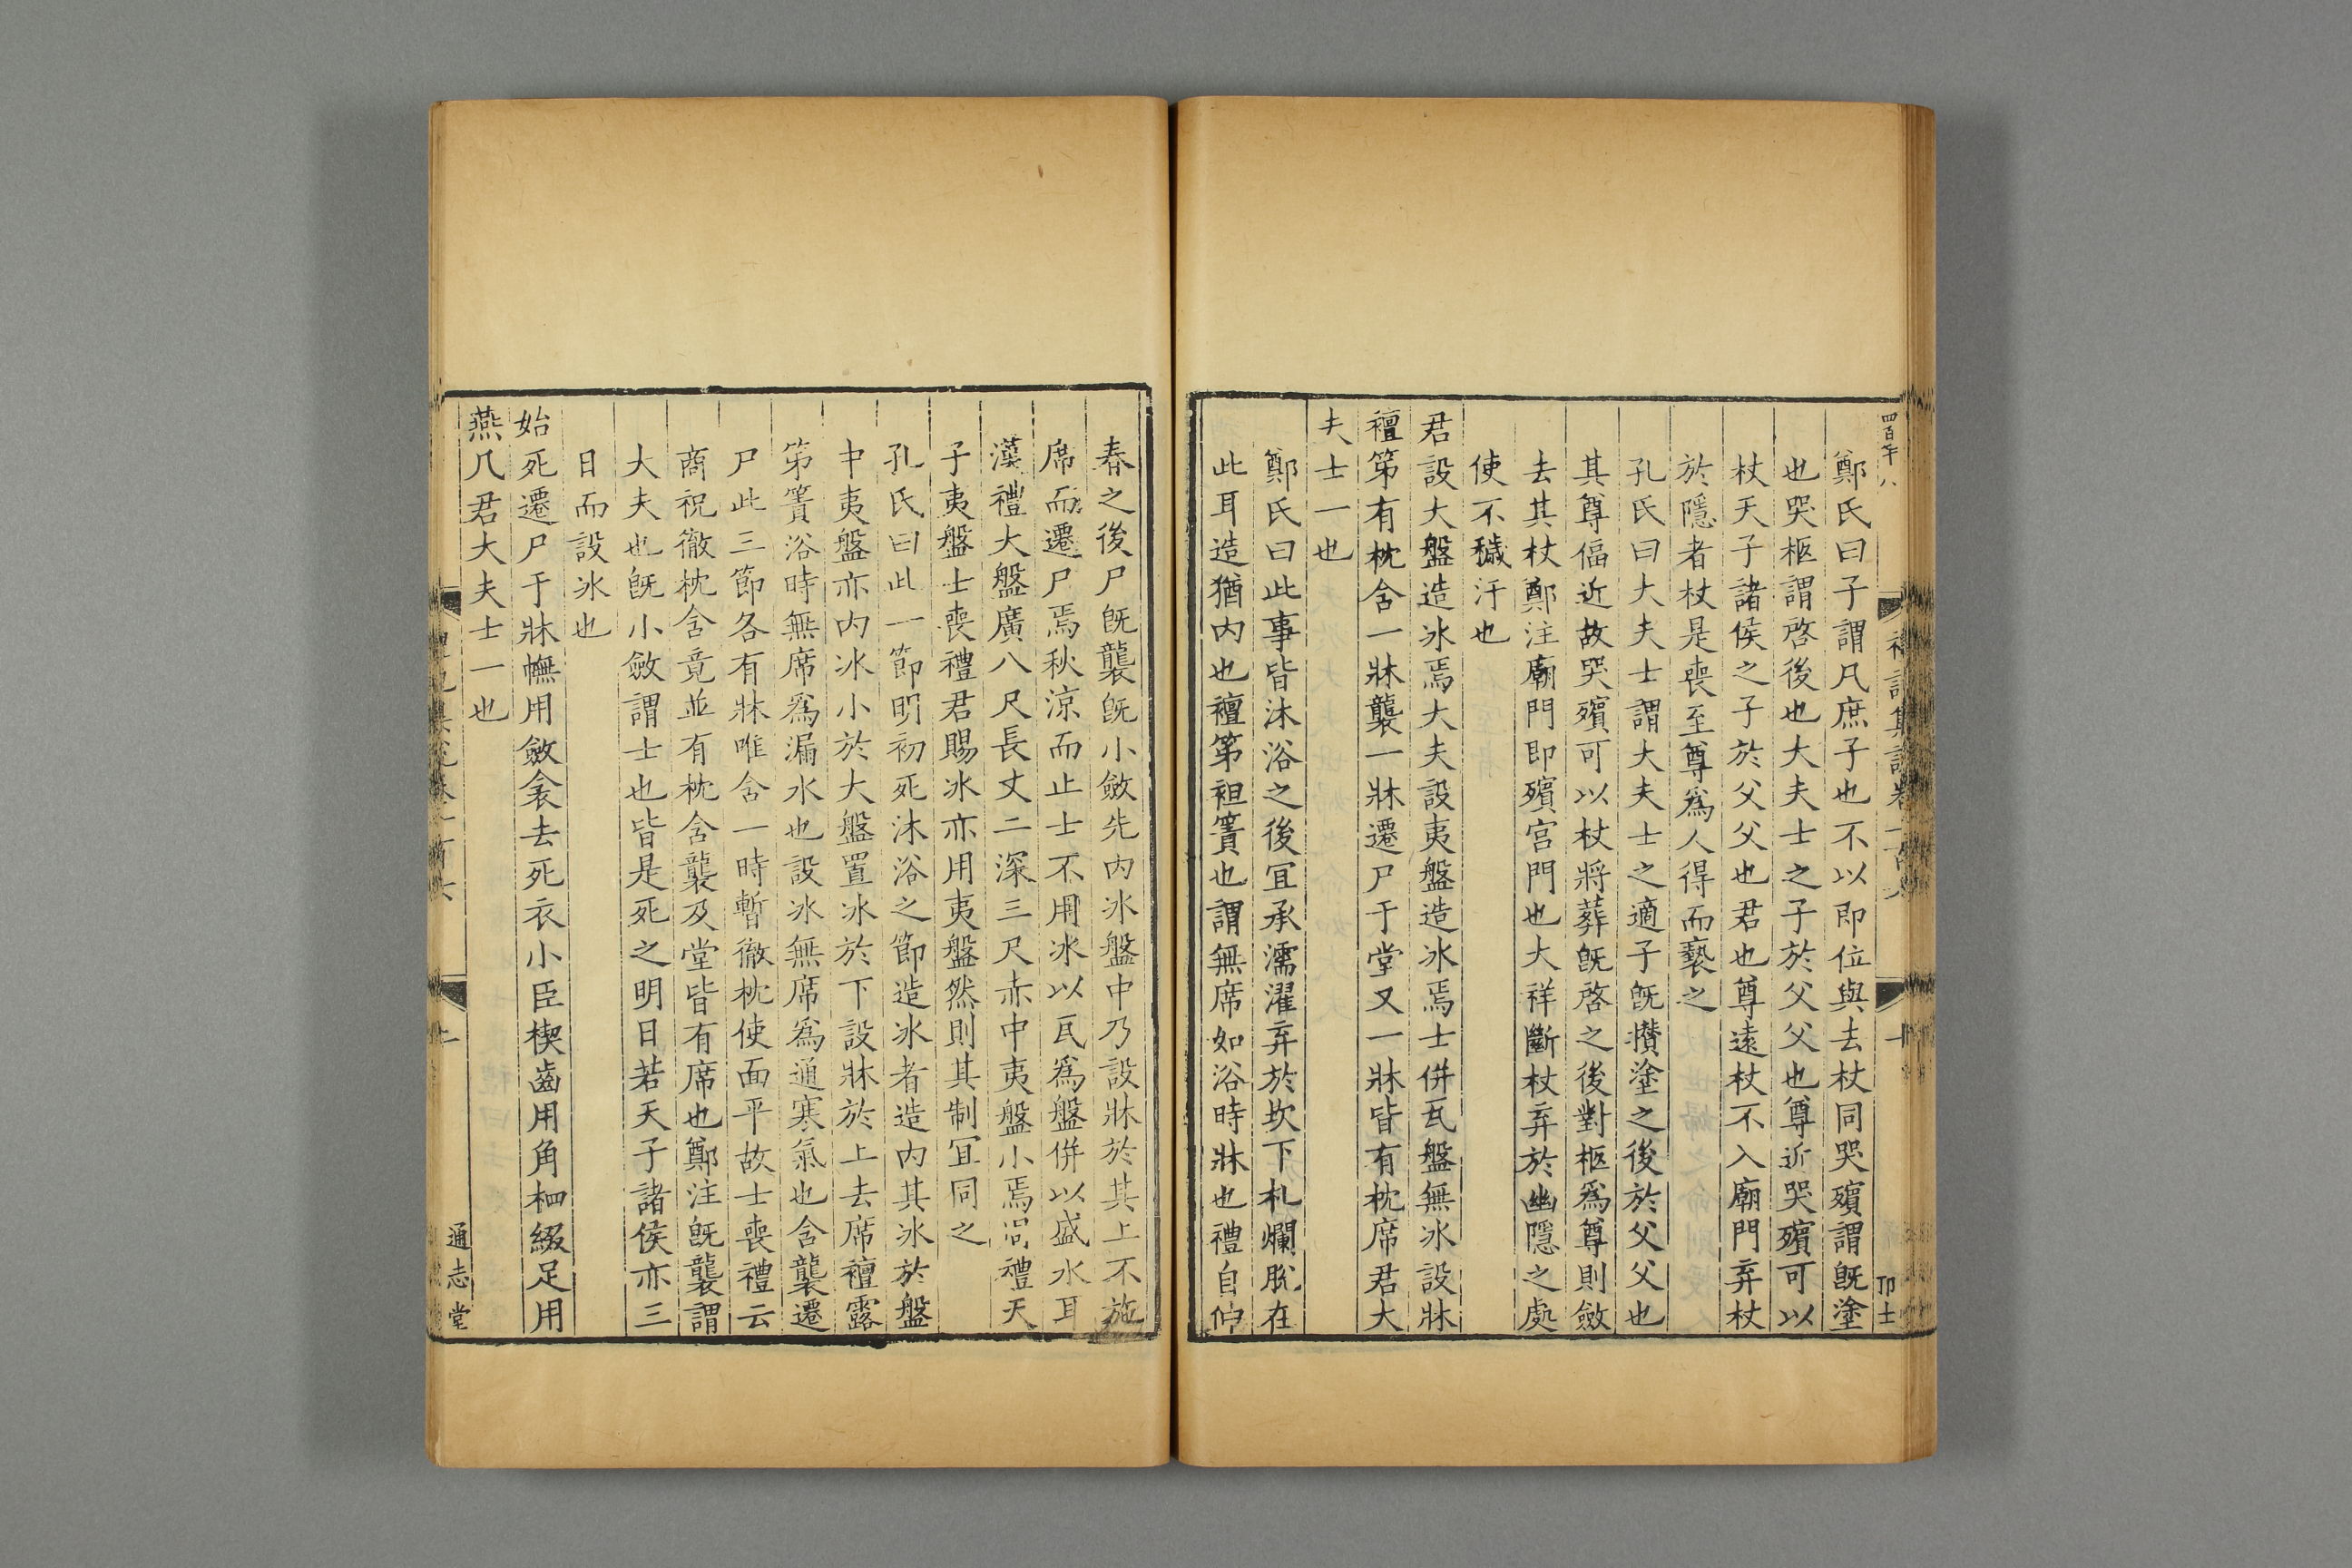 鄭氏曰子謂凡庶子也不以即位與去杖同哭殯謂旣塗
也哭柩謂啓後也大夫士之子於父父也尊近哭殯可以
杖天子諸侯之子於父父也君也尊遠杖不入廟門弃杖
於隱者杖是喪至尊爲人得而褻之
孔氏曰大夫士謂大夫士之適子旣攅塗之後於父父也
其尊偪近故哭殯可以杖將葬旣啓之後對柩爲尊則斂
去其杖鄭注廟門即殯宫門也大祥斷杖弃於幽隱之處
使不穢汙也
君設大盤造冰焉大夫設夷盤造冰焉士併瓦盤無冰設牀
襢笫有枕含一牀襲一牀遷尸于堂又一牀皆有枕席君大
夫士一也
鄭氏曰此事皆沐浴之後冝承濡濯弃於坎下札爛脫在
此耳造猶内也襢第袒簀也謂無席如浴時牀也禮自仲
春之後尸旣襲旣小斂先内冰盤中乃設牀於其上不施
席而遷尸焉秋涼而止士不用冰以瓦爲盤併以盛水耳
漢禮大盤廣八尺長丈二深三尺赤中夷盤小焉周禮天
子夷盤士喪禮君賜冰亦用夷盤然則其制冝同之
孔氏曰此一節明初死沐浴之節造冰者造内其冰於盤
中夷盤亦内冰小於大盤置冰於下設牀於上去席襢露
第簀浴時無席爲漏水也設冰無席爲通寒氣也含襲遷
尸此三節各有牀唯含一時暫徹枕使面平故士喪禮云
商祝徹枕含竟並有枕含襲及堂皆有席也鄭注旣襲謂
大夫也旣小斂謂士也皆是死之明日若天子諸侯亦三
日而設冰也
始死遷尸于牀幠用斂衾去死衣小臣楔齒用角柶綴足用
燕几君大夫士一也
通志堂